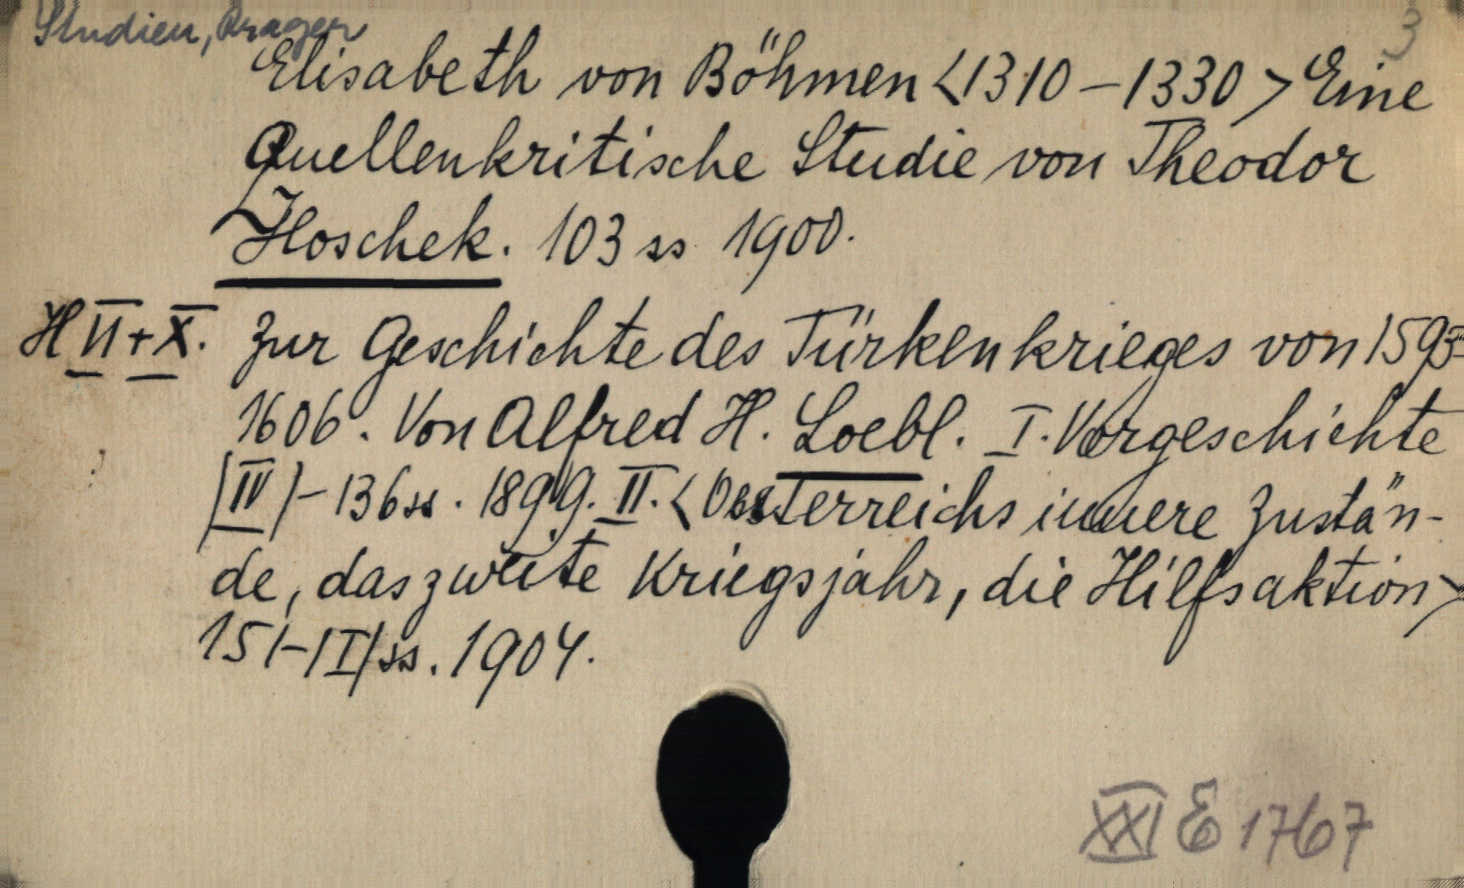 Studien, Prager
3
Elisabeth von Böhmen <1310-1330> Eine
Quellenkritische Studie von Theodor
Hoschek. 103 ss 1900.
H VI + X. Zur Geschichte des Türkenkrieges von 1593-
1606. Von Alfred H. Loebl. I. Vorgeschichte
|IV|-136 ss. 1899. II. <Oesterreichs innere Zustän-
de, das zweite Kriegsjahr, die Hilfsaktion>
151-|I| ss. 1904.
XXI E 1767